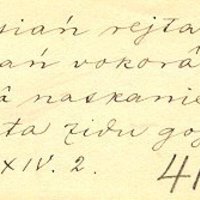 siań rejta
ań vokorâ
â naskanie
ta zidu goj
XIV. 2.
41